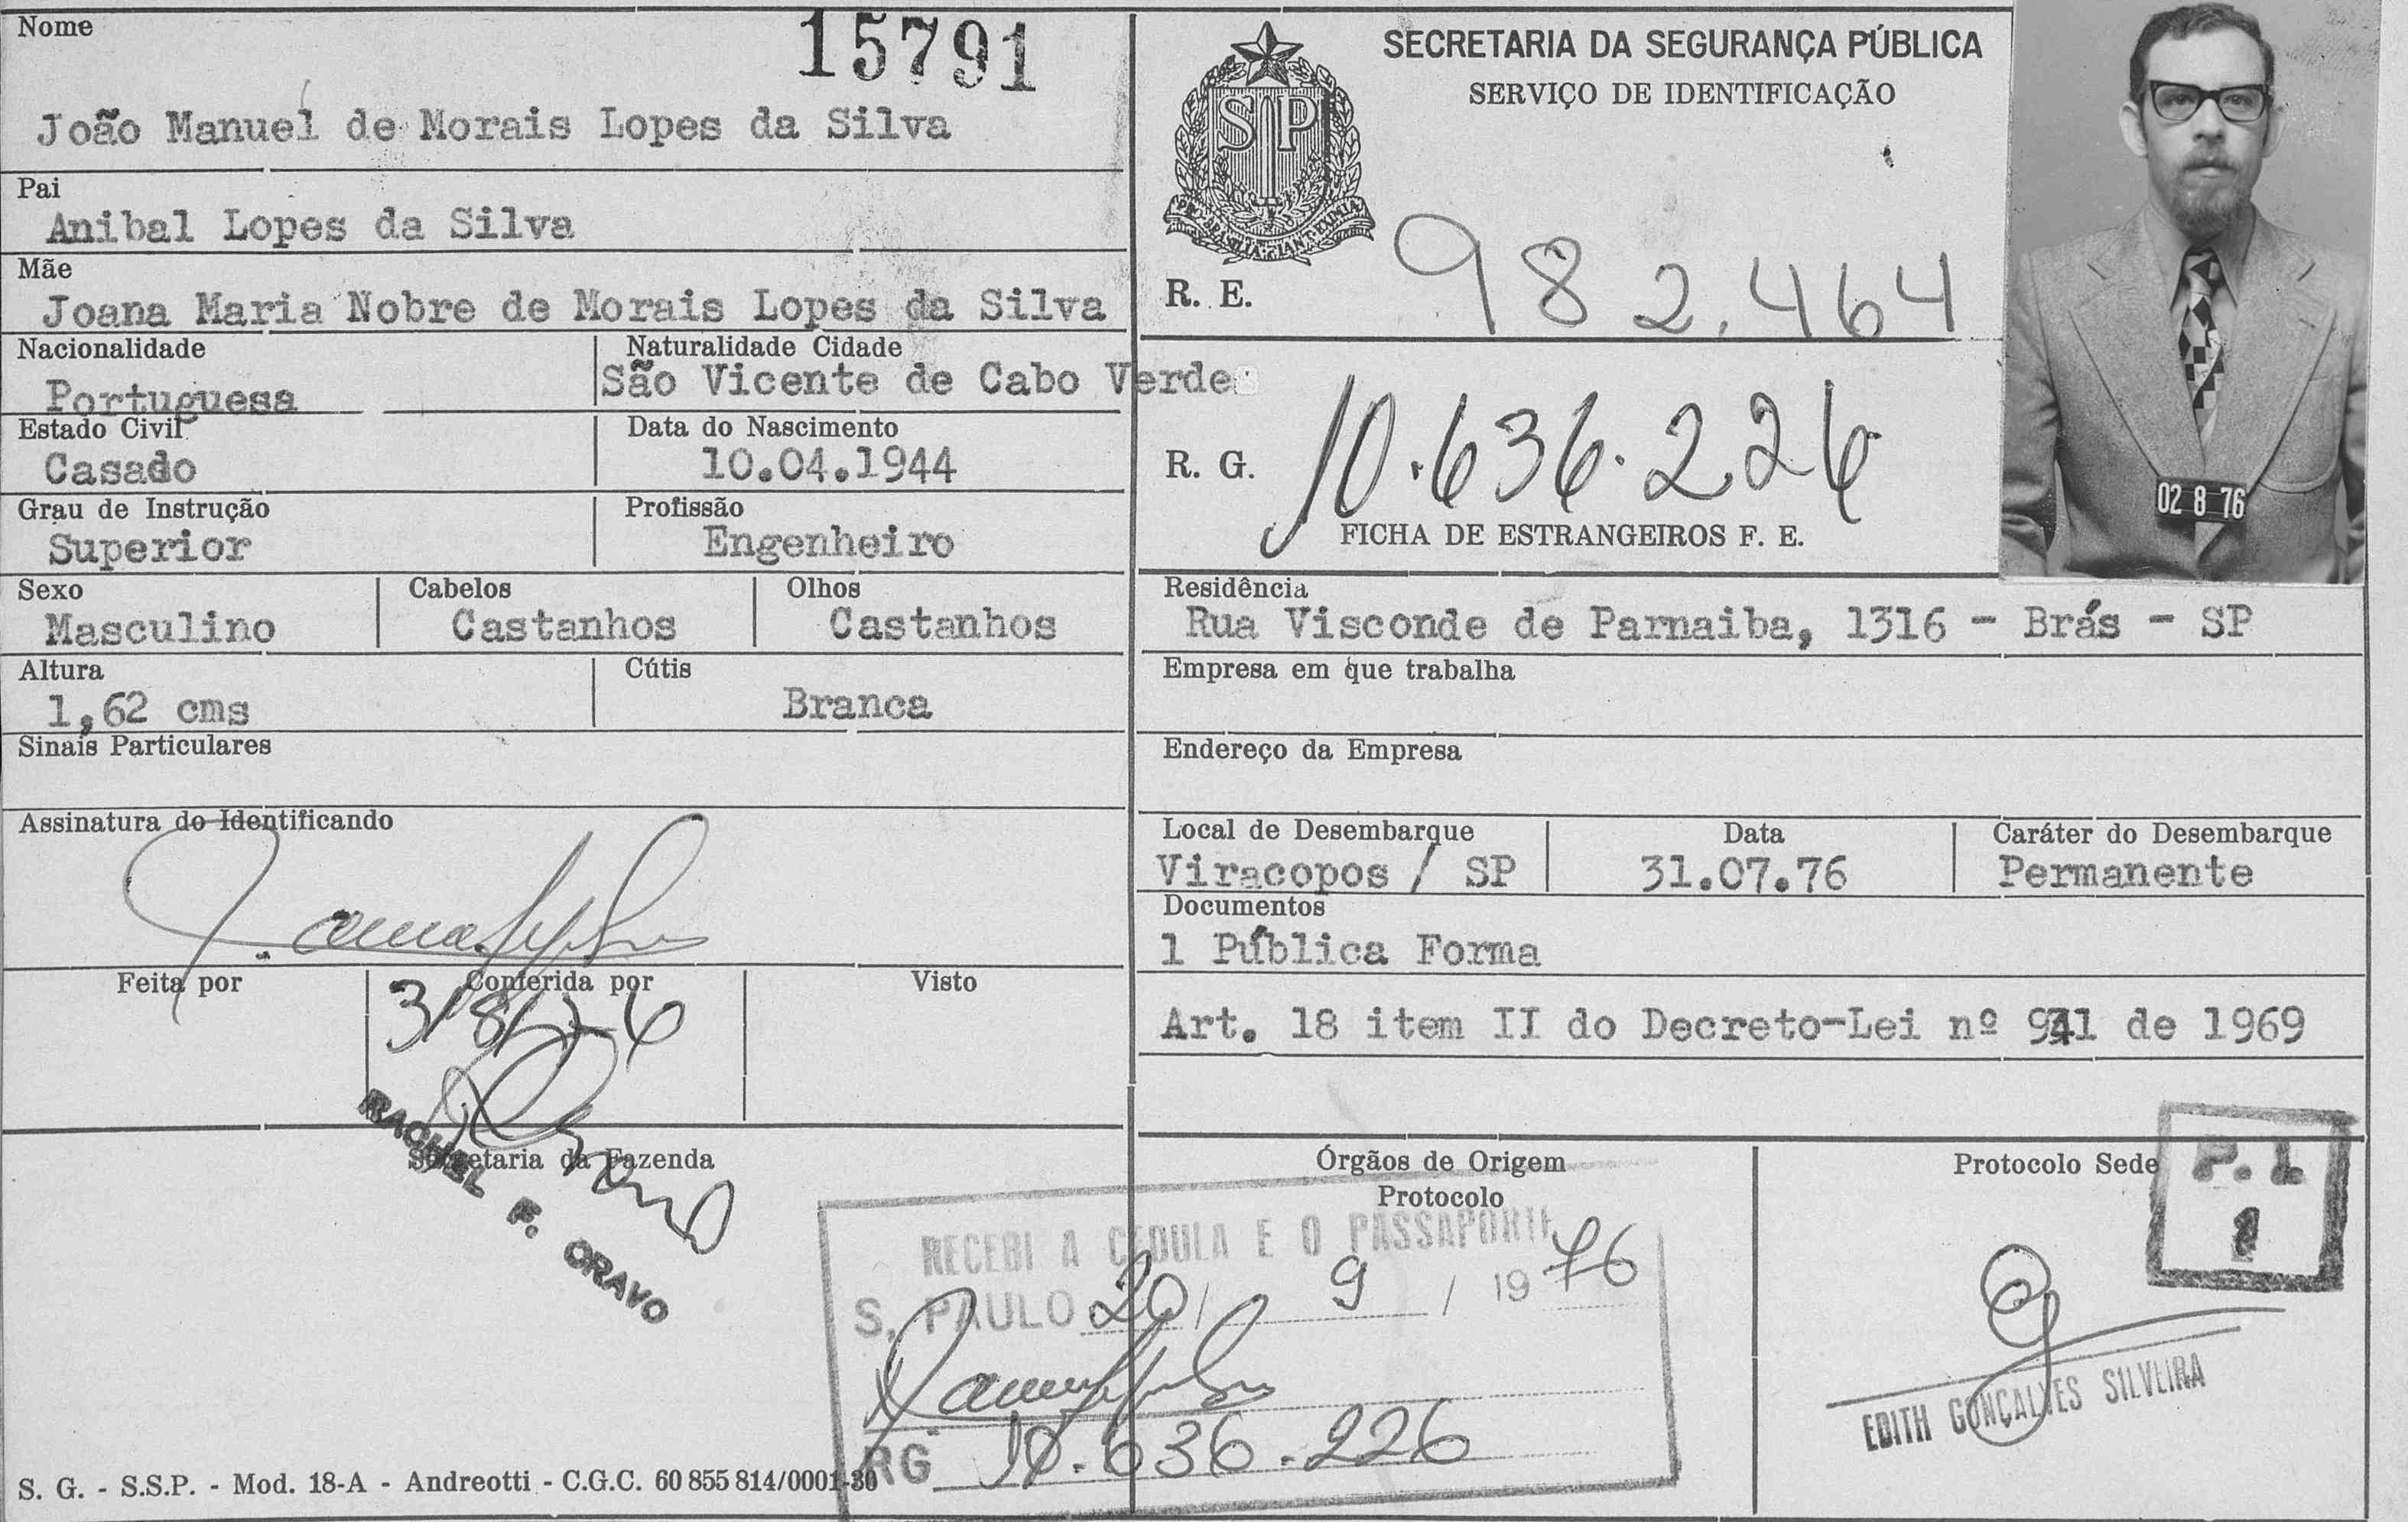 Nome
15791
João Manuel de Morais Lopes da Silva
Pai
Anibal Lopes da Silva
Mãe
Joana Maria Nobre de Morais Lopes da Silva
Nacionalidade
Portuguesa
Naturalidade Cidade
São Vicente de Cabo Verde
Estado Civil
Casado
Data do Nascimento
10.04.1944
Grau de Instrução
Superior
Profissão
Engenheiro
Sexo
Masculino
Cabelos
Castanhos
Olhos
Castanhos
Altura
1,62 cms
Cútis
Branca
Sinais Particulares
Assinatura do Identificando
Feita por
Conferida por
Visto
RACHEL F. CRAVO
Secretaria da Fazenda
S. G. - S.S.P. - Mod. 18-A - Andreotti - C.G.C. 60 855 814/0001-30
SP
SECRETARIA DA SEGURANÇA PÚBLICA
SERVIÇO DE IDENTIFICAÇÃO
R. E. 982.464
R. G. 10.636.226
FICHA DE ESTRANGEIROS F. E.
02 8 76
Residência
Rua Visconde de Parnaiba, 1316 - Brás - SP
Empresa em que trabalha
Endereço da Empresa
Local de Desembarque
Viracopos / SP
Data
31.07.76
Caráter do Desembarque
Permanente
Documentos
1 Pública Forma
Art. 18 item II do Decreto-Lei nº 941 de 1969
Órgãos de Origem
Protocolo
RECEBI A CÉDULA E O PASSAPORTE
S. PAULO 20/ 9 / 1976
RG 10.636.226
Protocolo Sede
P. I.
EDITH GONÇALVES SILVEIRA